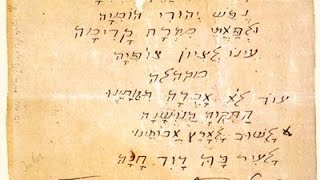 נפש יהודי הומיה
ולפאתי מזרח קדימה
עינו לציון צופיה
מקהלה
עוד לא אבדה תקותנו
התקוה הנושנה
לשוב לארץ אבותינו
לעיר בה דוד חנה